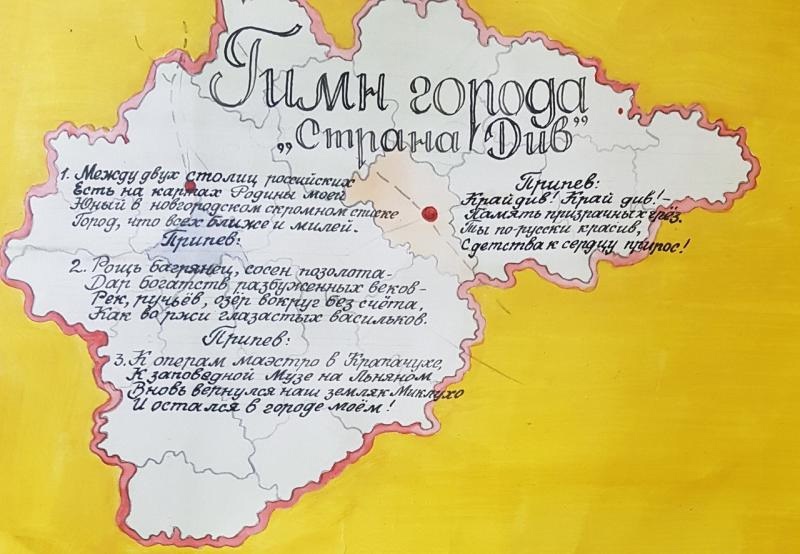 Гимн города
„Страна Див”
1. Между двух столиц российских
Есть на картах Родины моей
Юный в новгородском скромном списке
Город, что всех ближе и милей.
Припев:
2. Рощь багрянец, сосен позолота-
Дар богатств разбуженных веков-
Рек, ручьёв, озёр вокруг без счёта,
Как во ржи глазастых васильков.
Припев:
3. К операм маэстро в Крапачухе,
К заповедной Музе на Льняном
Вновь вернулся наш земляк Миклухо
И остался в городе моём!
Припев:
Край див! Край див!-
Память призрачных грёз.
Ты по-русски красив,
С детства к сердцу прирос!